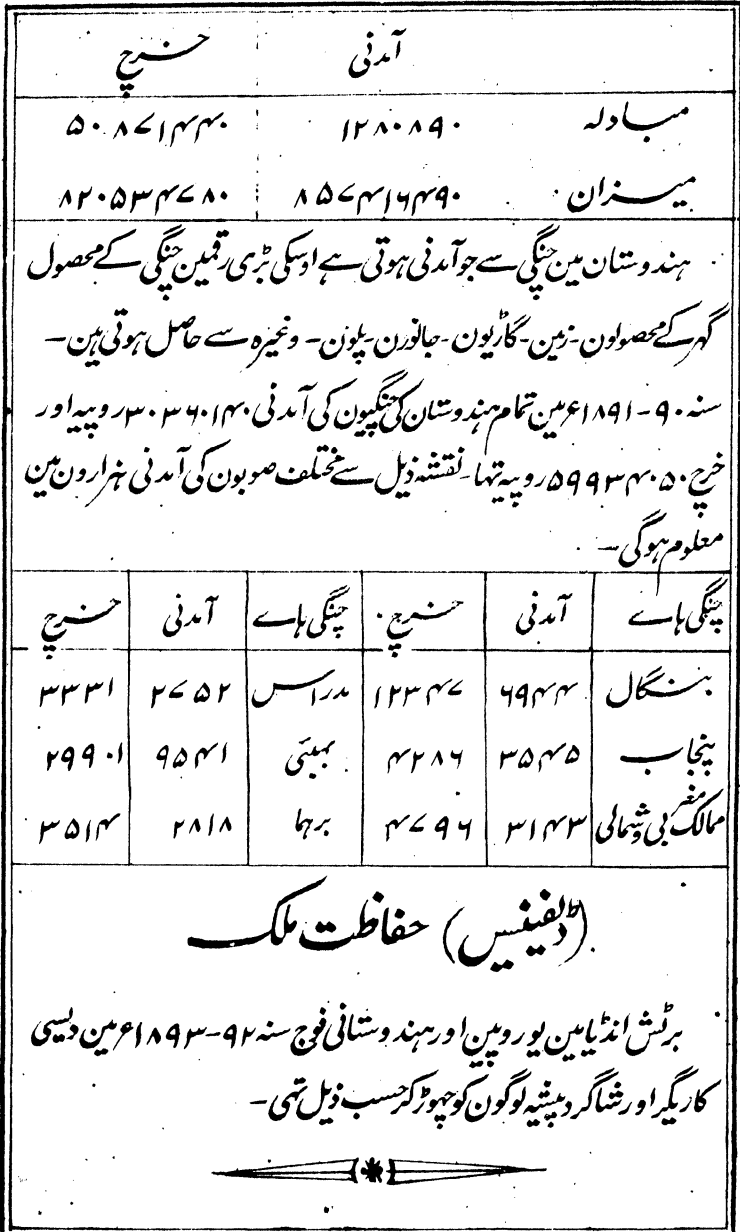 آمدنی خرچ
مبادلہ ۱۲۸۰۸۹۰ ۵۰۸۷۱۴۴۰
میزان ۸۵۷۴۱۶۴۹۰ ۸۲۰۵۳۴۷۸۰
ہندوستان مین چنگی سے جو آمدنی ہوتی ہے اوسکی بڑی رقمین چنگی کے محصول
گہر کے محصولون۔ زمین۔ گاڑیون۔ جانورن۔ پلون۔ وغیرہ سے حاصل ہوتی ہین۔
سنہ ۹۰-۱۸۹۱ء مین تمام ہندوستان کی چنگیون کی آمدنی ۳۰۳۶۰۱۴۰ روپیہ اور
خرچ ۵۹۹۳۴۰۵۰ روپیہ تہا۔ نقشہ ذیل سے مختلف صوبون کی آمدنی ہزارون مین
معلوم ہوگی۔
چنگی ہاے آمدنی خرچ چنگی ہاے آمدنی خرچ
بنگال ۶۹۴۴ ۱۲۳۴۷ مدراس ۲۷۵۲ ۳۳۳۱
پنجاب ۳۵۴۵ ۴۲۸۶ بمبئی ۹۵۴۱ ۲۹۹۰۱
ممالک مغربی و شمالی ۳۱۴۳ ۴۷۹۶ برہما ۲۸۱۸ ۳۵۱۴
(ڈیفینس) حفاظت ملک
برٹش انڈیا مین یوروپین اور ہندوستانی فوج سنہ ۹۲-۱۸۹۳ء مین دیسی
کاریگر اور شاگرد پیشہ لوگون کو چہوڑ کر حسب ذیل تہی۔